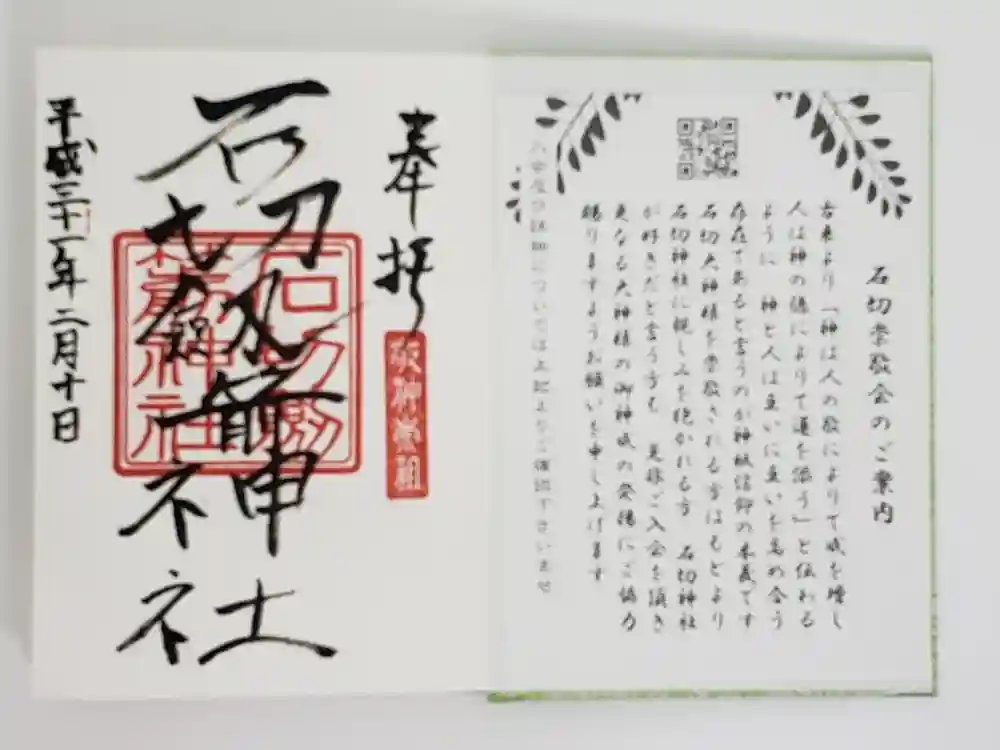 石切崇敬会のご案内
古来より「神は人の敬によりて威を増し
人は神の徳によりて運を添う」と伝わる
ように 神と人は互いに互いを高め合う
存在であると言うのが神祇信仰の本義です
石切大神様を崇敬される方はもとより
石切神社に親しみを抱かれる方 石切神社
が好きだと言う方も 是非ご入会を頂き
更なる大神様の御神威の発揚にご協力
賜りますようお願いを申し上げます
入会及び詳細については上記よりご確認下さいませ
奉拝
石切劔箭神社
石切劔箭神社
平成三十一年二月十日